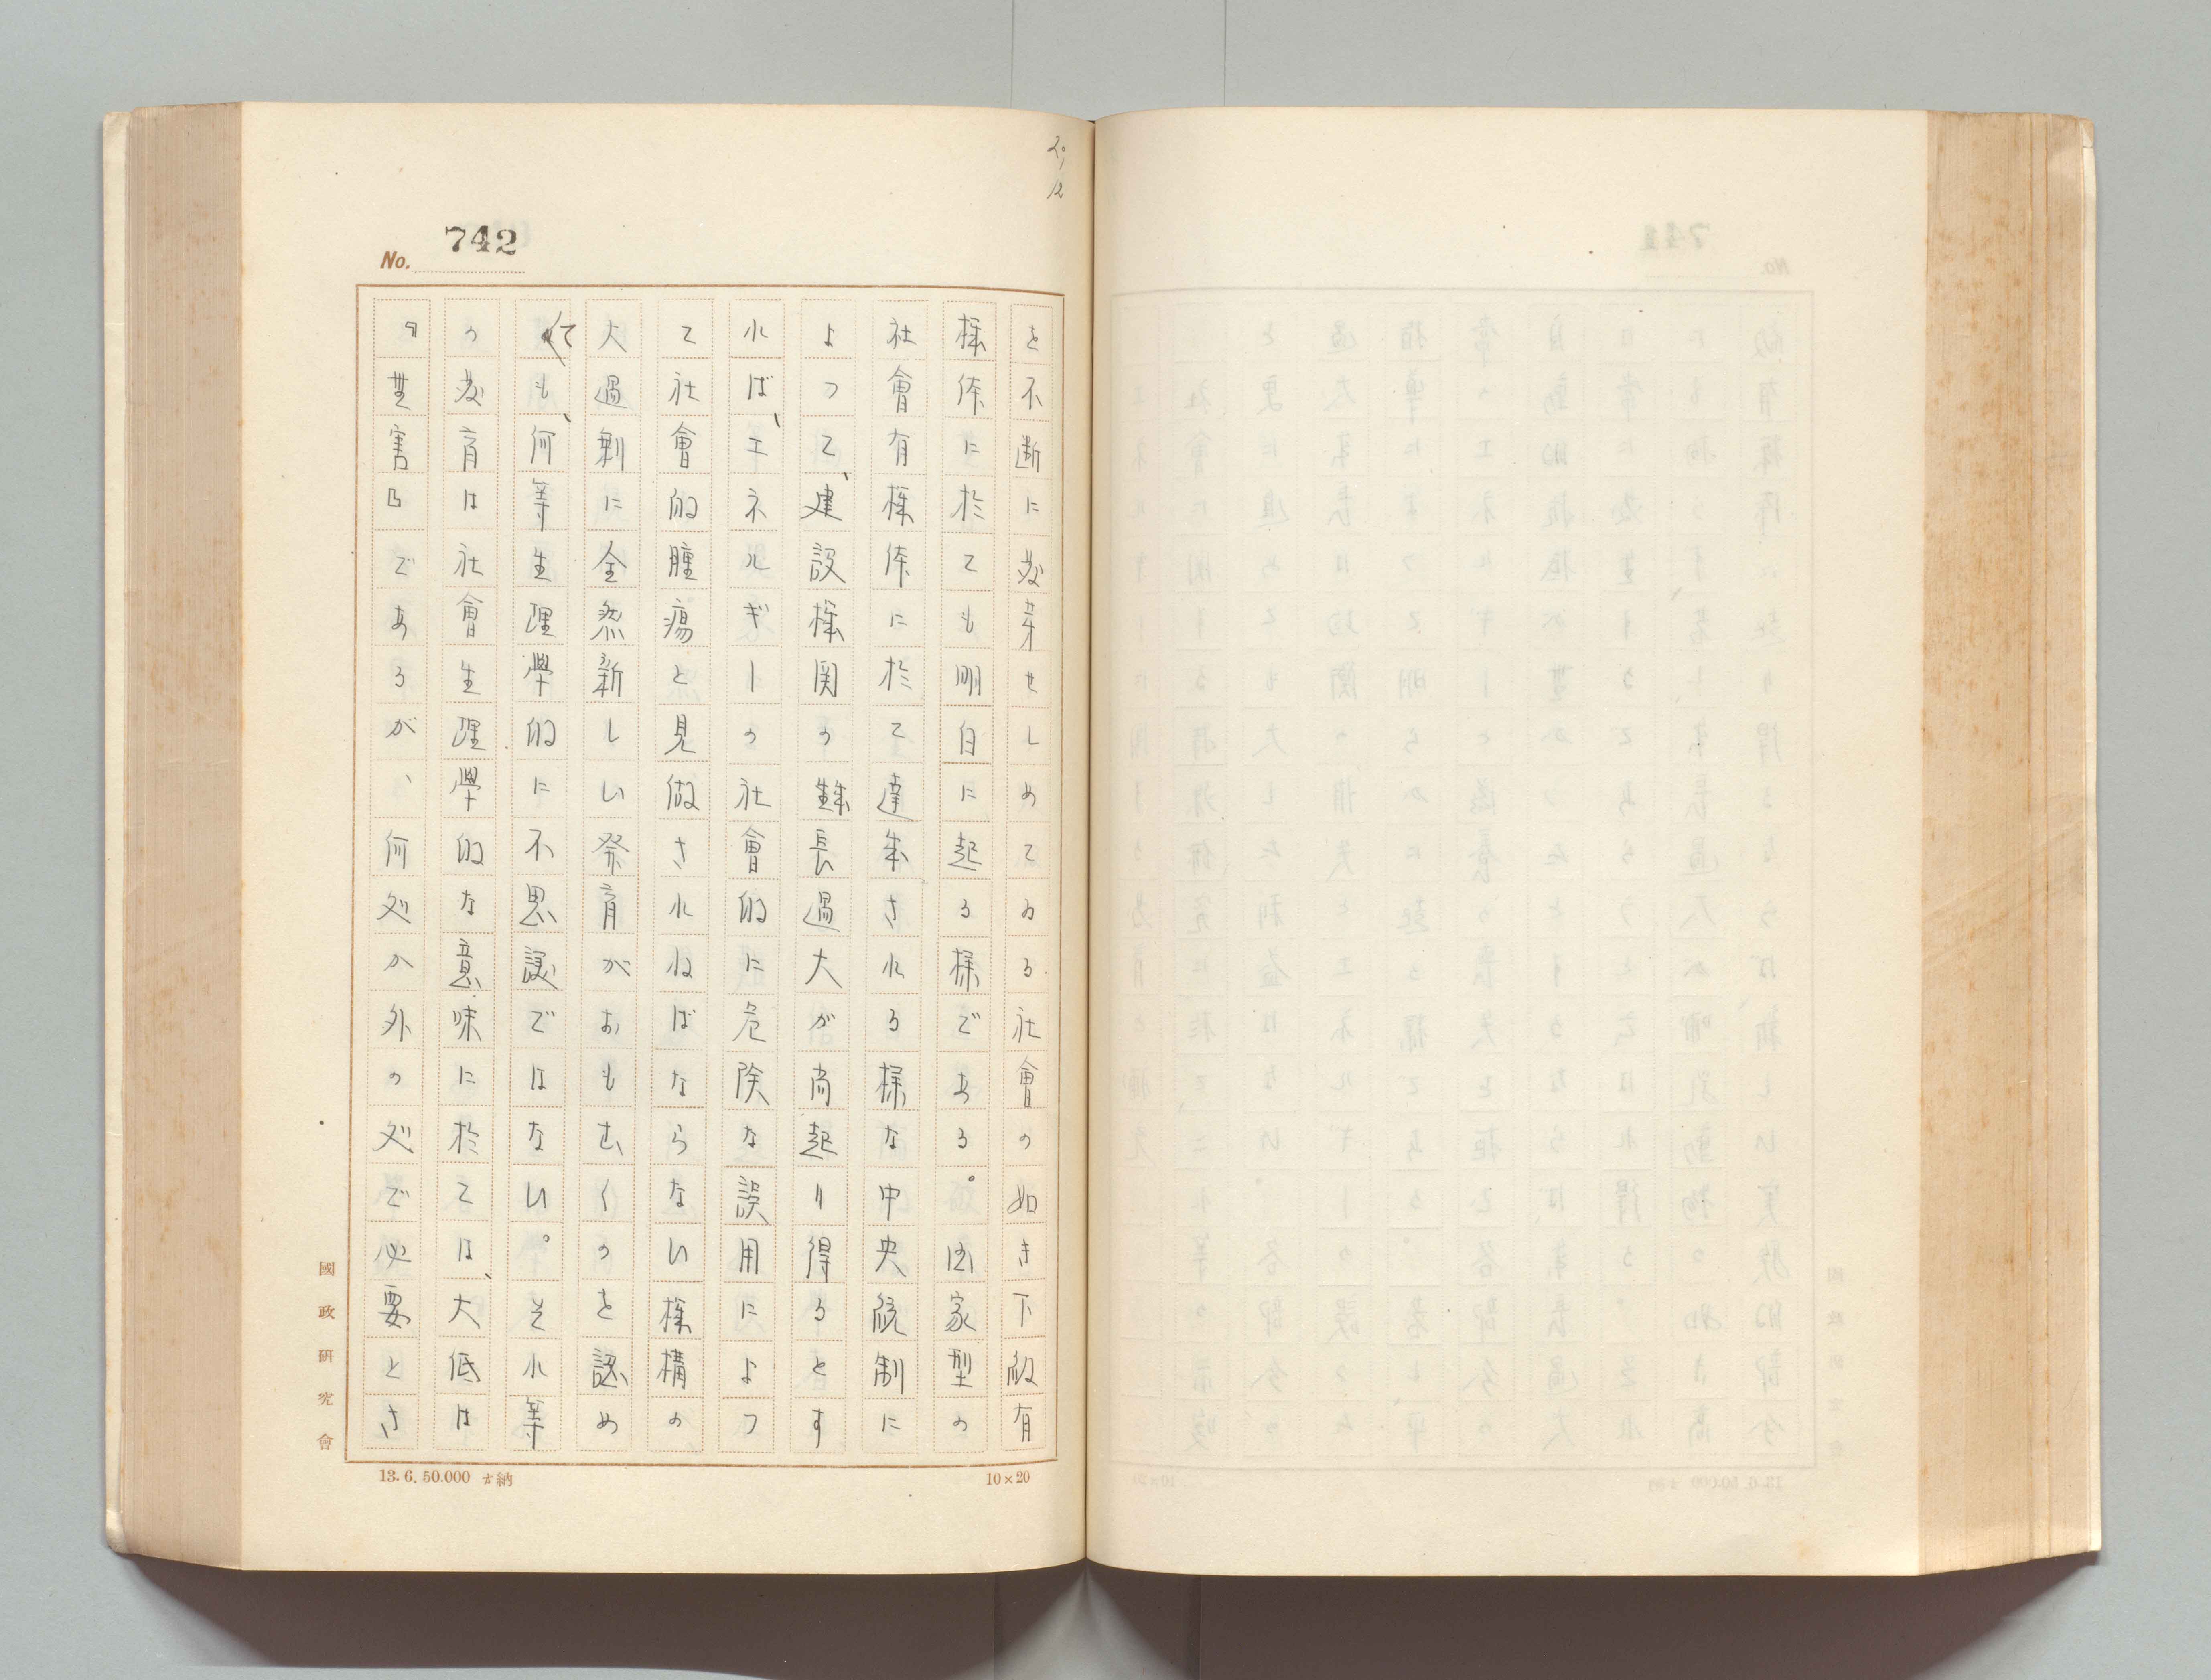 No. 742
を不断に発芽せしめてゐる社會の如き下級有
様体に於ても明白に起る様である。国家型の
社會有様体に於て達成される様な中央統制に
よつて、建設様関の 長過大が尚起り得るとす
れば、エネルギーの社會的に危険な誤用によつ
て社會的腫瘍と見做されねばならない様構の
大過剰に全然新しい発育がおもむくのを認め
ても、何等生理學的に不思議ではない。それ等
の発育は社會生理學的な意味に於ては、大低は
『無害』であるが、何処か外の処で必要とさ
國政研究會
13.6.50.000 納
10×20